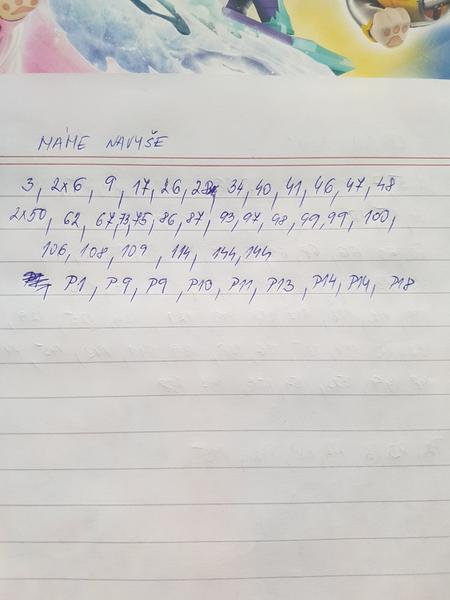 MÁME NAVYŠE
3, 2x6, 9, 17, 26, 28, 34, 40, 41, 46, 47, 48
2x50, 62, 67, 73, 75, 86, 87, 93, 97, 98, 99, 99, 100,
106, 108, 109, 114, 144, 144
P1, P9, P9, P10, P11, P13, P14, P14, P18